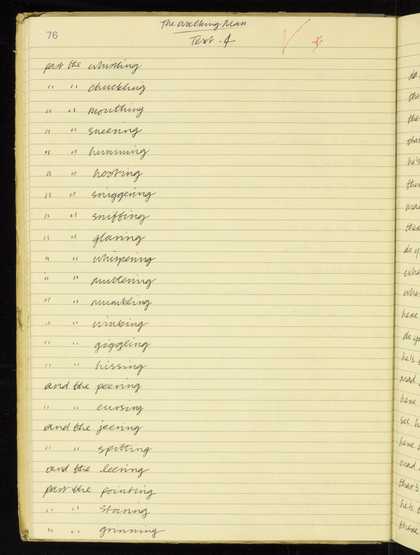 76
The Walking Man
Text. 4
past the whistling
" " chuckling
" " mouthing
" " sneering
" " humming
" " hooting
" " sniggering
" " sniffing
" " glaring
" " whispering
" " muttering
" " mumbling
" " winking
" " giggling
" " hissing
and the peering
" " cursing
and the jeering
" " spitting
and the leering
past the pointing
" " staring
" " grinning